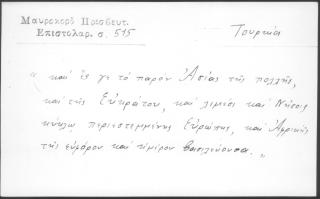 Μαυροκορδ Πρεσβευτ.
Επιστολαρ. σ. 515
Τουρκία
"καὶ ἔς γε τὸ παρὸν Ἀσίας τῆς πολλῆς,
καὶ τῆς Εὐκράτου, καὶ λιμέσι καὶ Νήσοις
κύκλῳ περιεστεμμένης Εὐρώπης, καὶ Ἀφρικῆς
τῆς εὐφόρου καὶ ἡμέρου βασιλεύουσα."